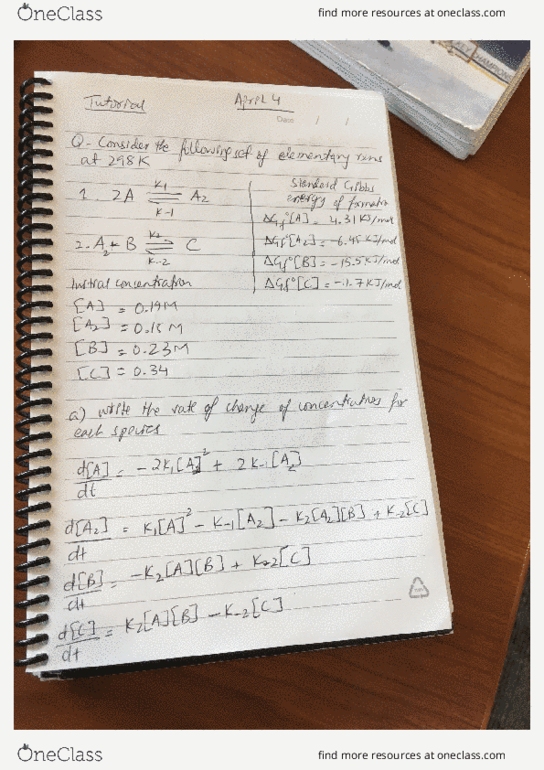 OneClass
find more resources at oneclass.com
Tutorial
April 4
Date / /
Q - Consider the following set of elementary rxns
at 298K
1. 2A ⇌ A₂
K₁
K-1
2. A₂ + B ⇌ C
K₂
K-2
Standard Gibbs
energy of formation
ΔGf°[A] = 4.31 KJ/mol
ΔGf°[A₂] = -6.45 KJ/mol
ΔGf°[B] = -15.5 KJ/mol
ΔGf°[C] = -1.7 KJ/mol
Initial concentration
[A] = 0.19M
[A₂] = 0.15 M
[B] = 0.23M
[C] = 0.34
a) write the rate of change of concentrations for
each species
d[A]/dt = -2K₁[A]² + 2K-1[A₂]
d[A₂]/dt = K₁[A]² - K-1[A₂] - K₂[A₂][B] + K-2[C]
d[B]/dt = -K₂[A][B] + K-2[C]
d[C]/dt = K₂[A][B] - K-2[C]
OneClass
find more resources at oneclass.com